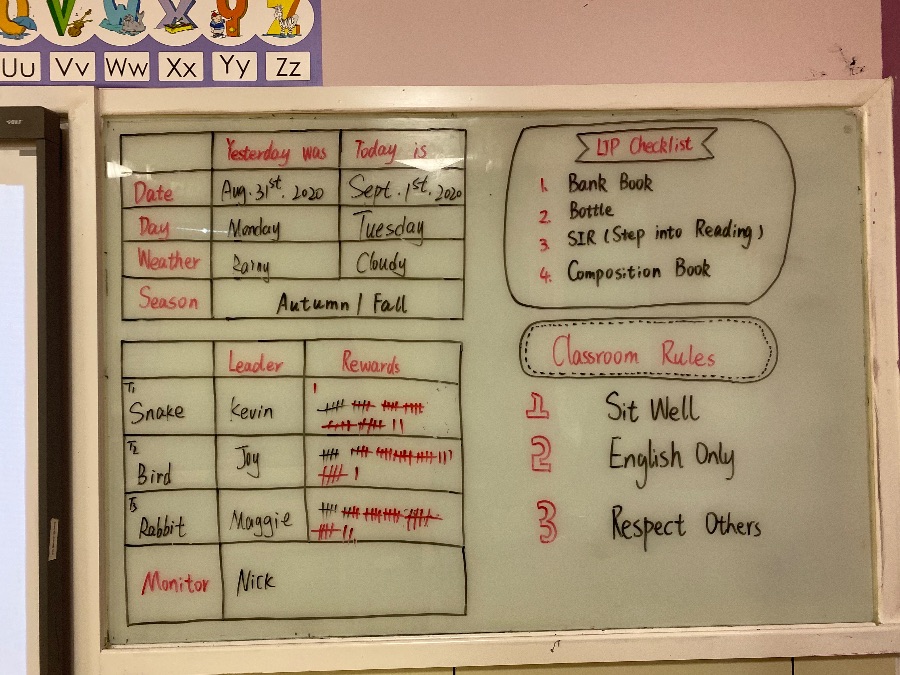 Uu Vv Ww Xx Yy Zz
Yesterday was Today is
Date Aug. 31st. 2020 Sept. 1st. 2020
Day Monday Tuesday
Weather Rainy Cloudy
Season Autumn / Fall
Leader Rewards
T1 Snake Kevin
T2 Bird Joy
T3 Rabbit Maggie
Monitor Nick
UP Checklist
1. Bank Book
2. Bottle
3. SIR (Step into Reading)
4. Composition Book
Classroom Rules
1 Sit Well
2 English Only
3 Respect Others